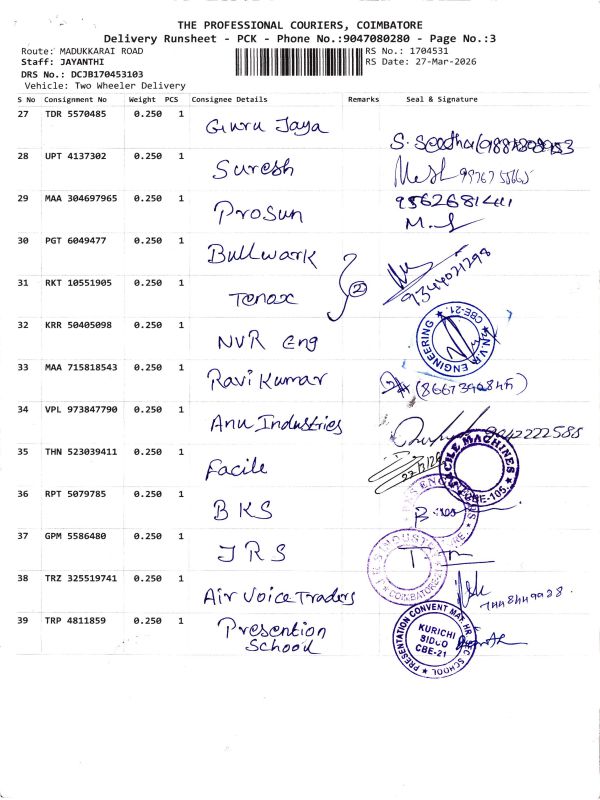 THE PROFESSIONAL COURIERS, COIMBATORE
Delivery Runsheet - PCK - Phone No.:9047080280 - Page No.:3
Route: MADUKKARAI ROAD RS No.: 1704531
Staff: JAYANTHI RS Date: 27-Mar-2026
DRS No.: DCJB170453103
Vehicle: Two Wheeler Delivery
S No Consignment No Weight PCS Consignee Details Remarks Seal & Signature
27 TDR 5570485 0.250 1 Guru Jaya
28 UPT 4137302 0.250 1 Suresh
29 MAA 304697965 0.250 1 ProSun 9562681411
30 PGT 6049477 0.250 1 Bullwark
31 RKT 10551905 0.250 1 Tenax 2 9344021298
32 KRR 50405098 0.250 1 NVR Eng N.V.R. ENGINEERING CBE-21.
33 MAA 715818543 0.250 1 Ravi Kumar
34 VPL 973847790 0.250 1 Anu Industries
35 THN 523039411 0.250 1 Facile FACILE MACHINES CBE-105.
36 RPT 5079785 0.250 1 BKS
37 GPM 5586480 0.250 1 JRS COIMBATORE
38 TRZ 325519741 0.250 1 Air Voice Traders
39 TRP 4811859 0.250 1 Presention School PRESENTATION CONVENT MAT HR SEC SCHOOL KURICHI SIDCO CBE-21